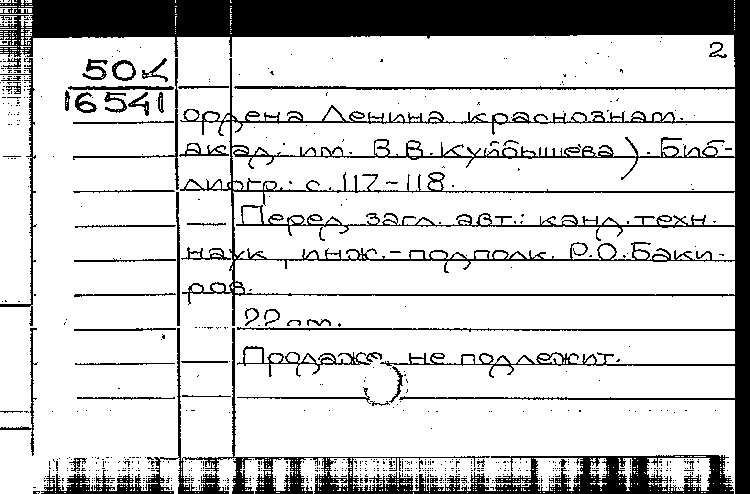 2
50к
16541
ордена Ленина краснознам.
акад. им. В.В.Куйбышева). Биб-
лиогр.: с. 117-118.
— Перед загл. авт.: канд.техн.
наук, инж.-подполк. Р.О.Баки-
ров.
22 см.
— Продаже не подлежит.